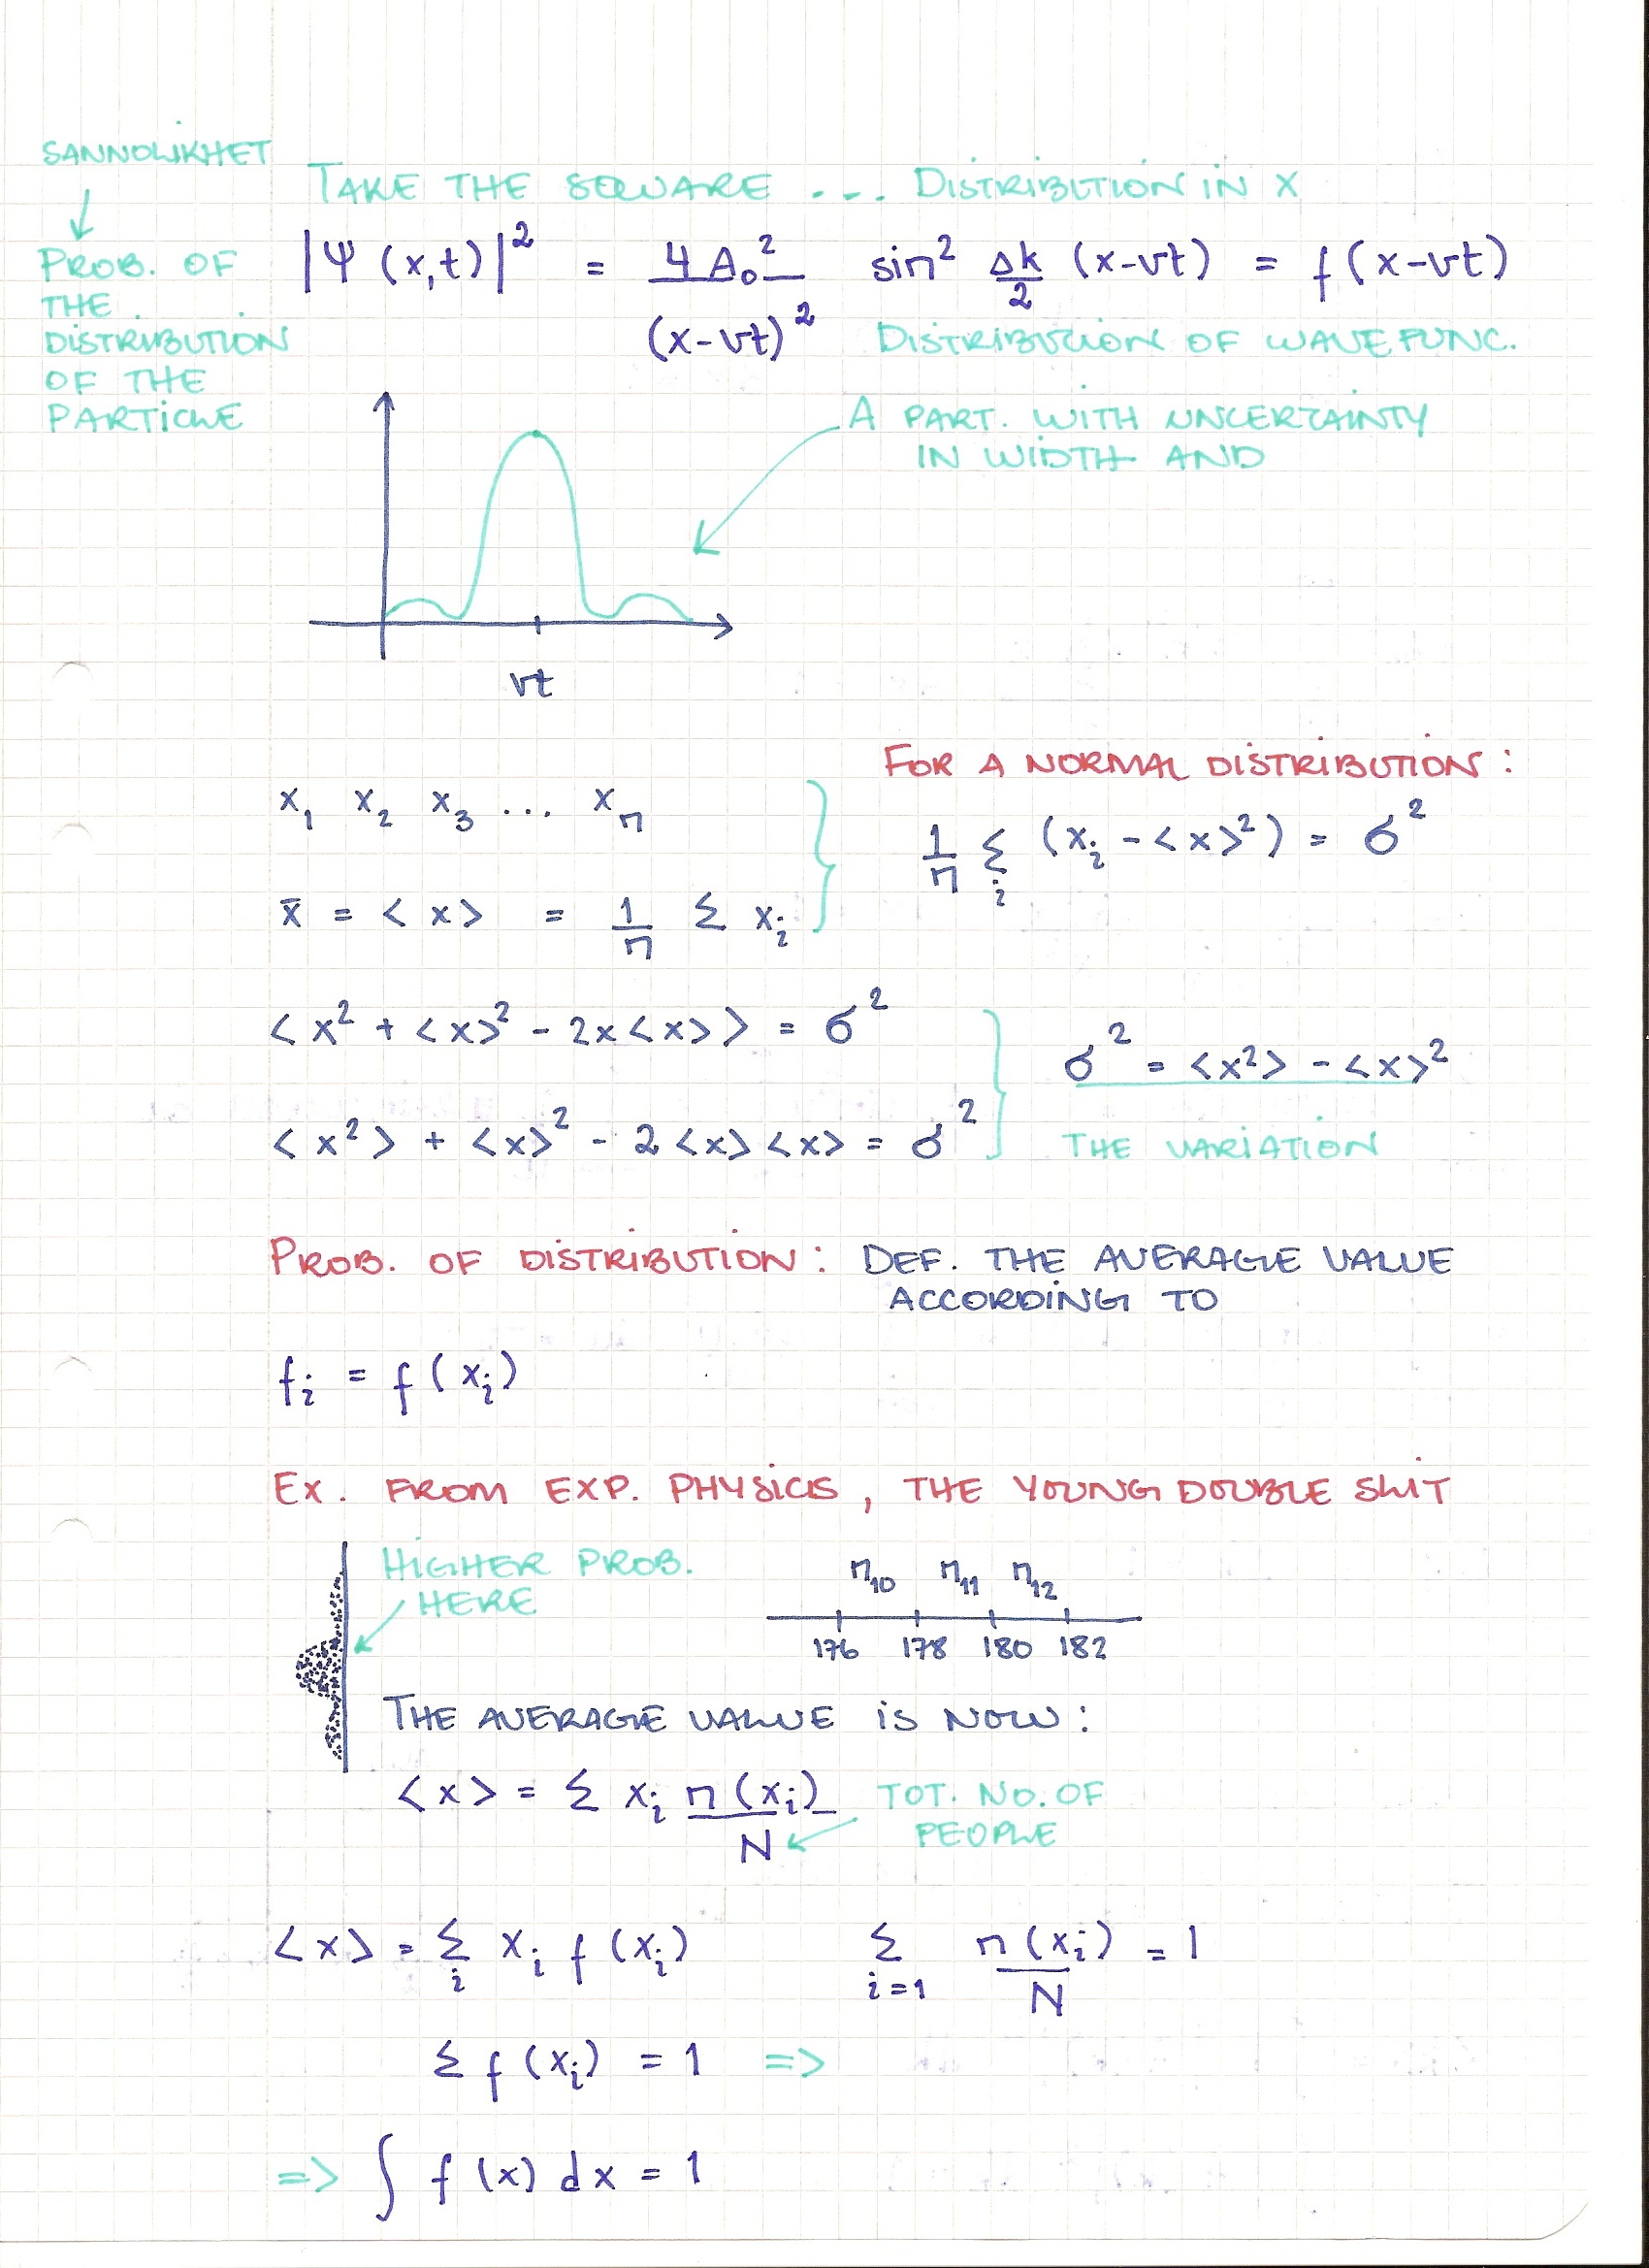 SANNOLIKHET
TAKE THE SQUARE ... DISTRIBUTION IN X
PROB. OF
THE
DISTRIBUTION
OF THE
PARTICLE
|Ψ(x,t)|² = 4A₀²/(x-vt)² sin² Δk/2 (x-vt) = f(x-vt)
DISTRIBUTION OF WAVE FUNC.
A PART. WITH UNCERTAINTY
IN WIDTH AND
vt
FOR A NORMAL DISTRIBUTION:
x₁ x₂ x₃ ... xₙ
1/n Σᵢ (xᵢ - <x>²) = σ²
x̄ = <x> = 1/n Σ xᵢ
<x² + <x>² - 2x<x>> = σ²
σ² = <x²> - <x>²
<x²> + <x>² - 2<x><x> = σ²
THE VARIATION
PROB. OF DISTRIBUTION: DEF. THE AVERAGE VALUE
ACCORDING TO
fᵢ = f(xᵢ)
EX. FROM EXP. PHYSICS, THE YOUNG DOUBLE SLIT
HIGHER PROB.
HERE
n₁₀ n₁₁ n₁₂
176 178 180 182
THE AVERAGE VALUE IS NOW:
<x> = Σ xᵢ n(xᵢ)/N
TOT. NO. OF
PEOPLE
<x> = Σᵢ xᵢ f(xᵢ) Σᵢ₌₁ n(xᵢ)/N = 1
Σ f(xᵢ) = 1 =>
=> ∫ f(x) dx = 1